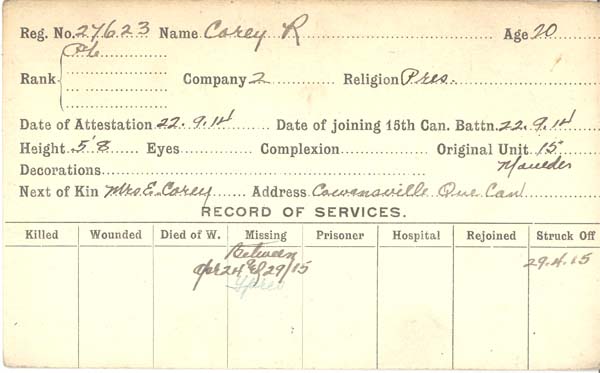 Reg. No. 27623 Name Corey R Age 20
Pte
Rank Company 2 Religion Pres.
Date of Attestation 22.9.14 Date of joining 15th Can. Battn. 22.9.14
Height 5'8 Eyes Complexion Original Unit 15
Decorations
Next of Kin Mrs E. Corey Address Cowansville Que Can
RECORD OF SERVICES.
Killed Wounded Died of W. Missing Prisoner Hospital Rejoined Struck Off
Between
Apr 24 & 29/15 29.4.15
Ypres